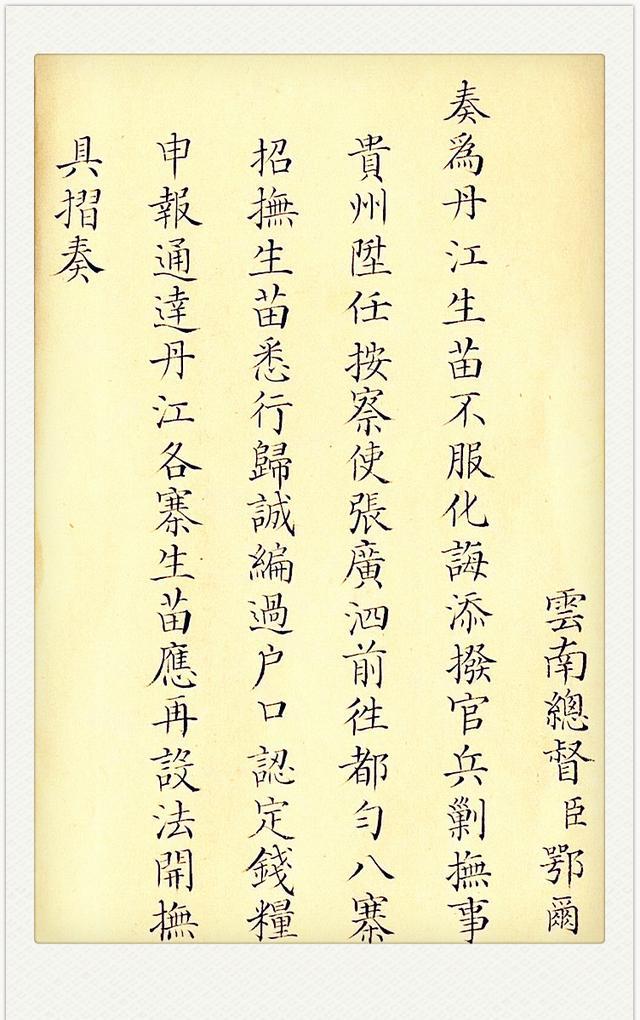 雲南總督臣鄂爾
奏爲丹江生苗不服化誨添撥官兵剿撫事
貴州陞任按察使張廣泗前徃都勻八寨
招撫生苗悉行歸誠編過户口認定錢糧
申報通達丹江各寨生苗應再設法開撫
具摺奏